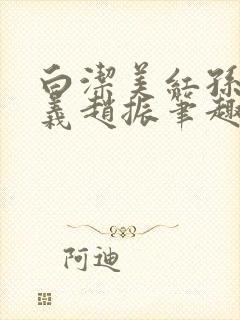 白潔美紅孫
義趙振筆趣
阿迪